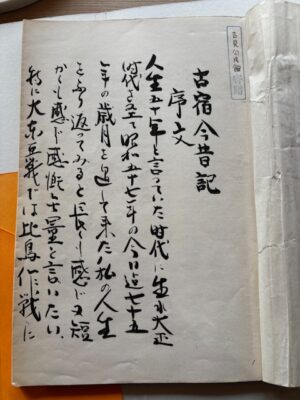 古宿今昔記
序文
人生五十年と言っていた時代に生れ大正
時代を経て昭和五十七年の今日迄七十五
年の歳月を過して来た私の人生
をふり返ってみると長くも感じ又短
かくも感じ感慨無量と言いたい。
特に大東亜戦では比島作戦に
1